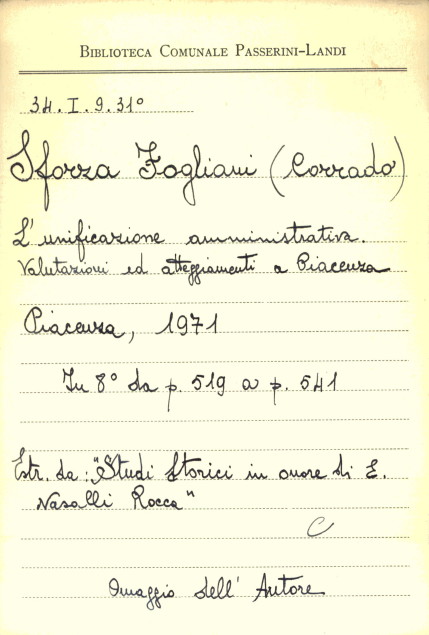 BIBLIOTECA COMUNALE PASSERINI-LANDI
34.I.9.31°
Sforza Fogliani (Corrado)
L'unificazione amministrativa.
Valutazioni ed atteggiamenti a Piacenza
Piacenza, 1971
In 8° da p. 519 a p. 541
Estr. da: "Studi Storici in onore di E.
Nasalli Rocca"
C
Omaggio dell'Autore